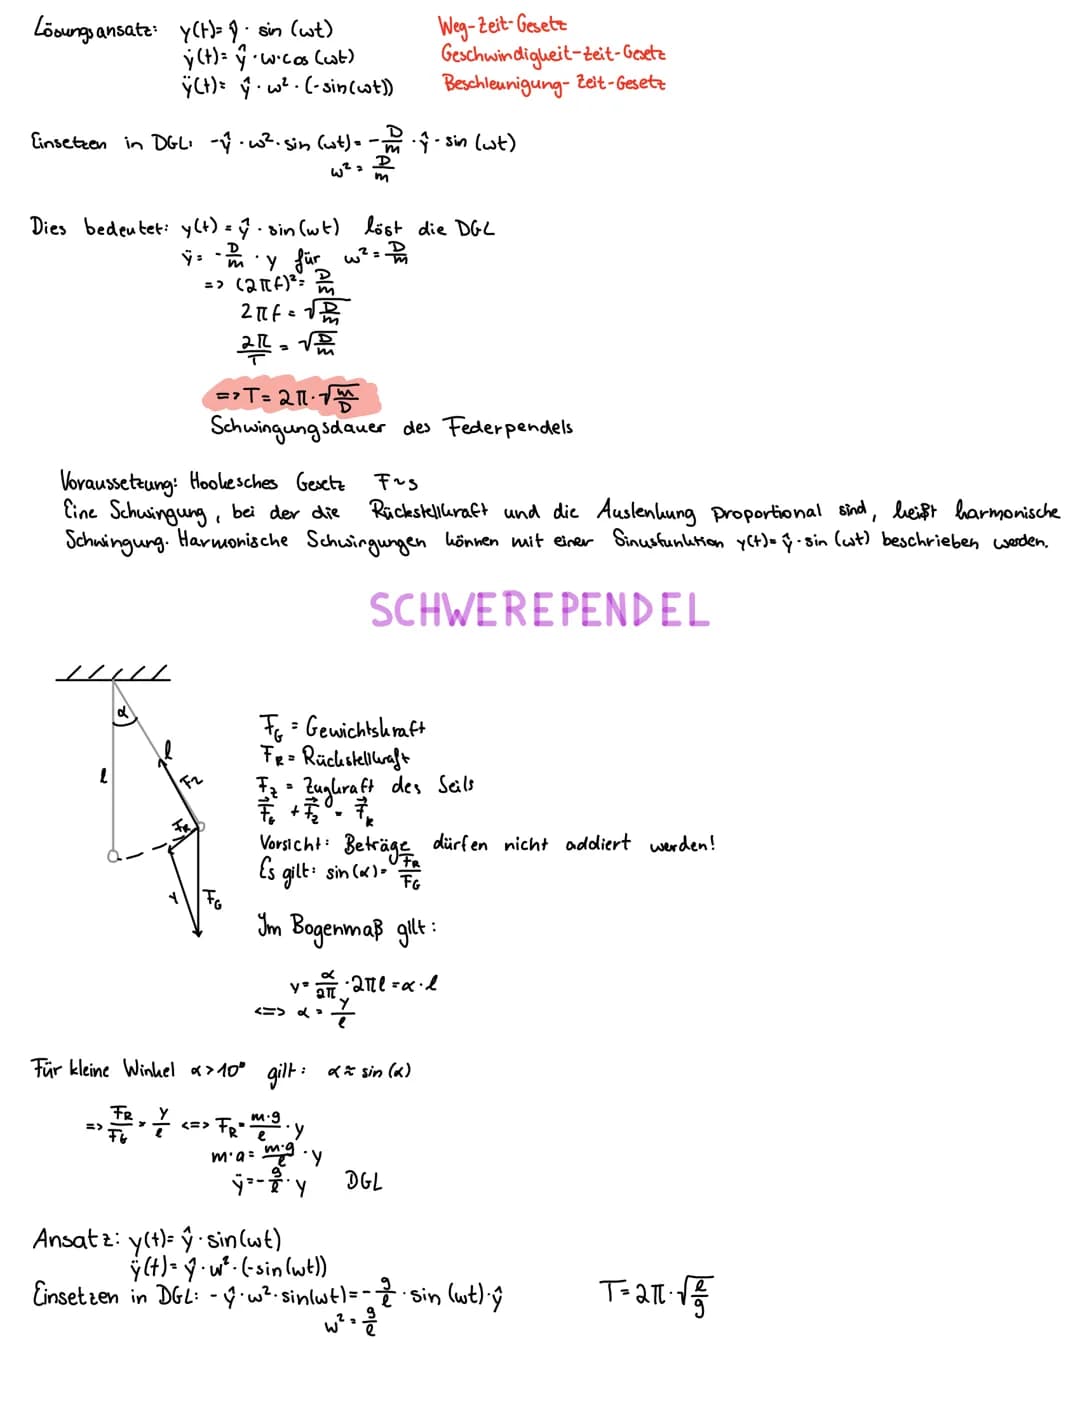 Lösungsansatz: y(t)= ŷ · sin (ωt) Weg-Zeit-Gesetz
ẏ(t)= ŷ · ω·cos (ωt) Geschwindigkeit-Zeit-Gesetz
ÿ(t)= ŷ · ω² · (-sin(ωt)) Beschleunigung-Zeit-Gesetz
Einsetzen in DGL: -ŷ · ω² · sin (ωt) = -D/m · ŷ · sin (ωt)
ω² = D/m
Dies bedeutet: y(t) = ŷ · sin(ωt) löst die DGL
ÿ = -D/m · y für ω² = D/m
=> (2πf)² = D/m
2πf = √(D/m)
2π/T = √(D/m)
=> T = 2π · √(m/D)
Schwingungsdauer des Federpendels
Voraussetzung: Hookesches Gesetz F~s
Eine Schwingung, bei der die Rückstellkraft und die Auslenkung proportional sind, heißt harmonische
Schwingung. Harmonische Schwingungen können mit einer Sinusfunktion y(t)= ŷ · sin (ωt) beschrieben werden.
SCHWEREPENDEL
α
l
l
Fz
FR
y
FG
FG = Gewichtskraft
FR = Rückstellkraft
Fz = Zugkraft des Seils
F⃗G + F⃗z = F⃗R
Vorsicht: Beträge dürfen nicht addiert werden!
Es gilt: sin(α) = FR/FG
Im Bogenmaß gilt:
y = α/2π · 2πl = α · l
<=> α = y/l
Für kleine Winkel α>10° gilt: α ≈ sin (α)
=> FR/FG = y/l <=> FR = m·g/l · y
m·a = m·g/l · y
ÿ = -g/l · y DGL
Ansatz: y(t)= ŷ · sin(ωt)
ÿ(t)= ŷ · ω² · (-sin(ωt))
Einsetzen in DGL: -ŷ · ω² · sin(ωt) = -g/l · sin (ωt) · ŷ T = 2π · √(l/g)
ω² = g/l